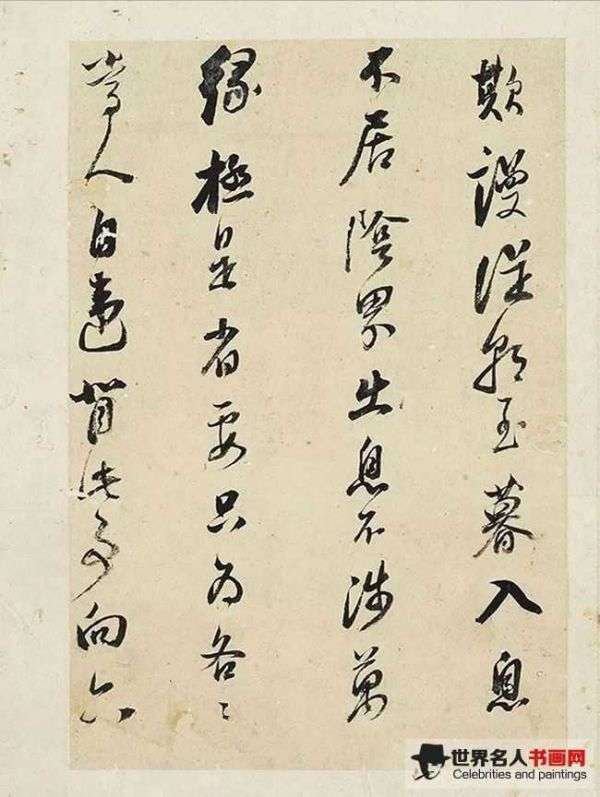 欺謾從朝至暮入息
不居陰界出息不涉萬
緣極是省要只為各〻
當人自違背此事向六
世界名人书画网
Celebrities and paintings